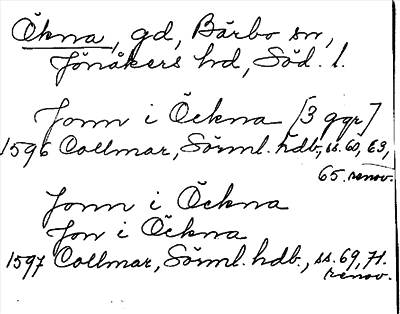 Ökna, gd, Bärbo sn,
Jönåkers hd, Söd. l.
Jonn i Öckna [3 ggr]
1596 Collmar, Sörml. hdb., ss. 60, 63,
65. renov.
Jonn i Öckna
Jon i Öckna
1597 Collmar, Sörml. hdb., ss. 69, 71.
renov.